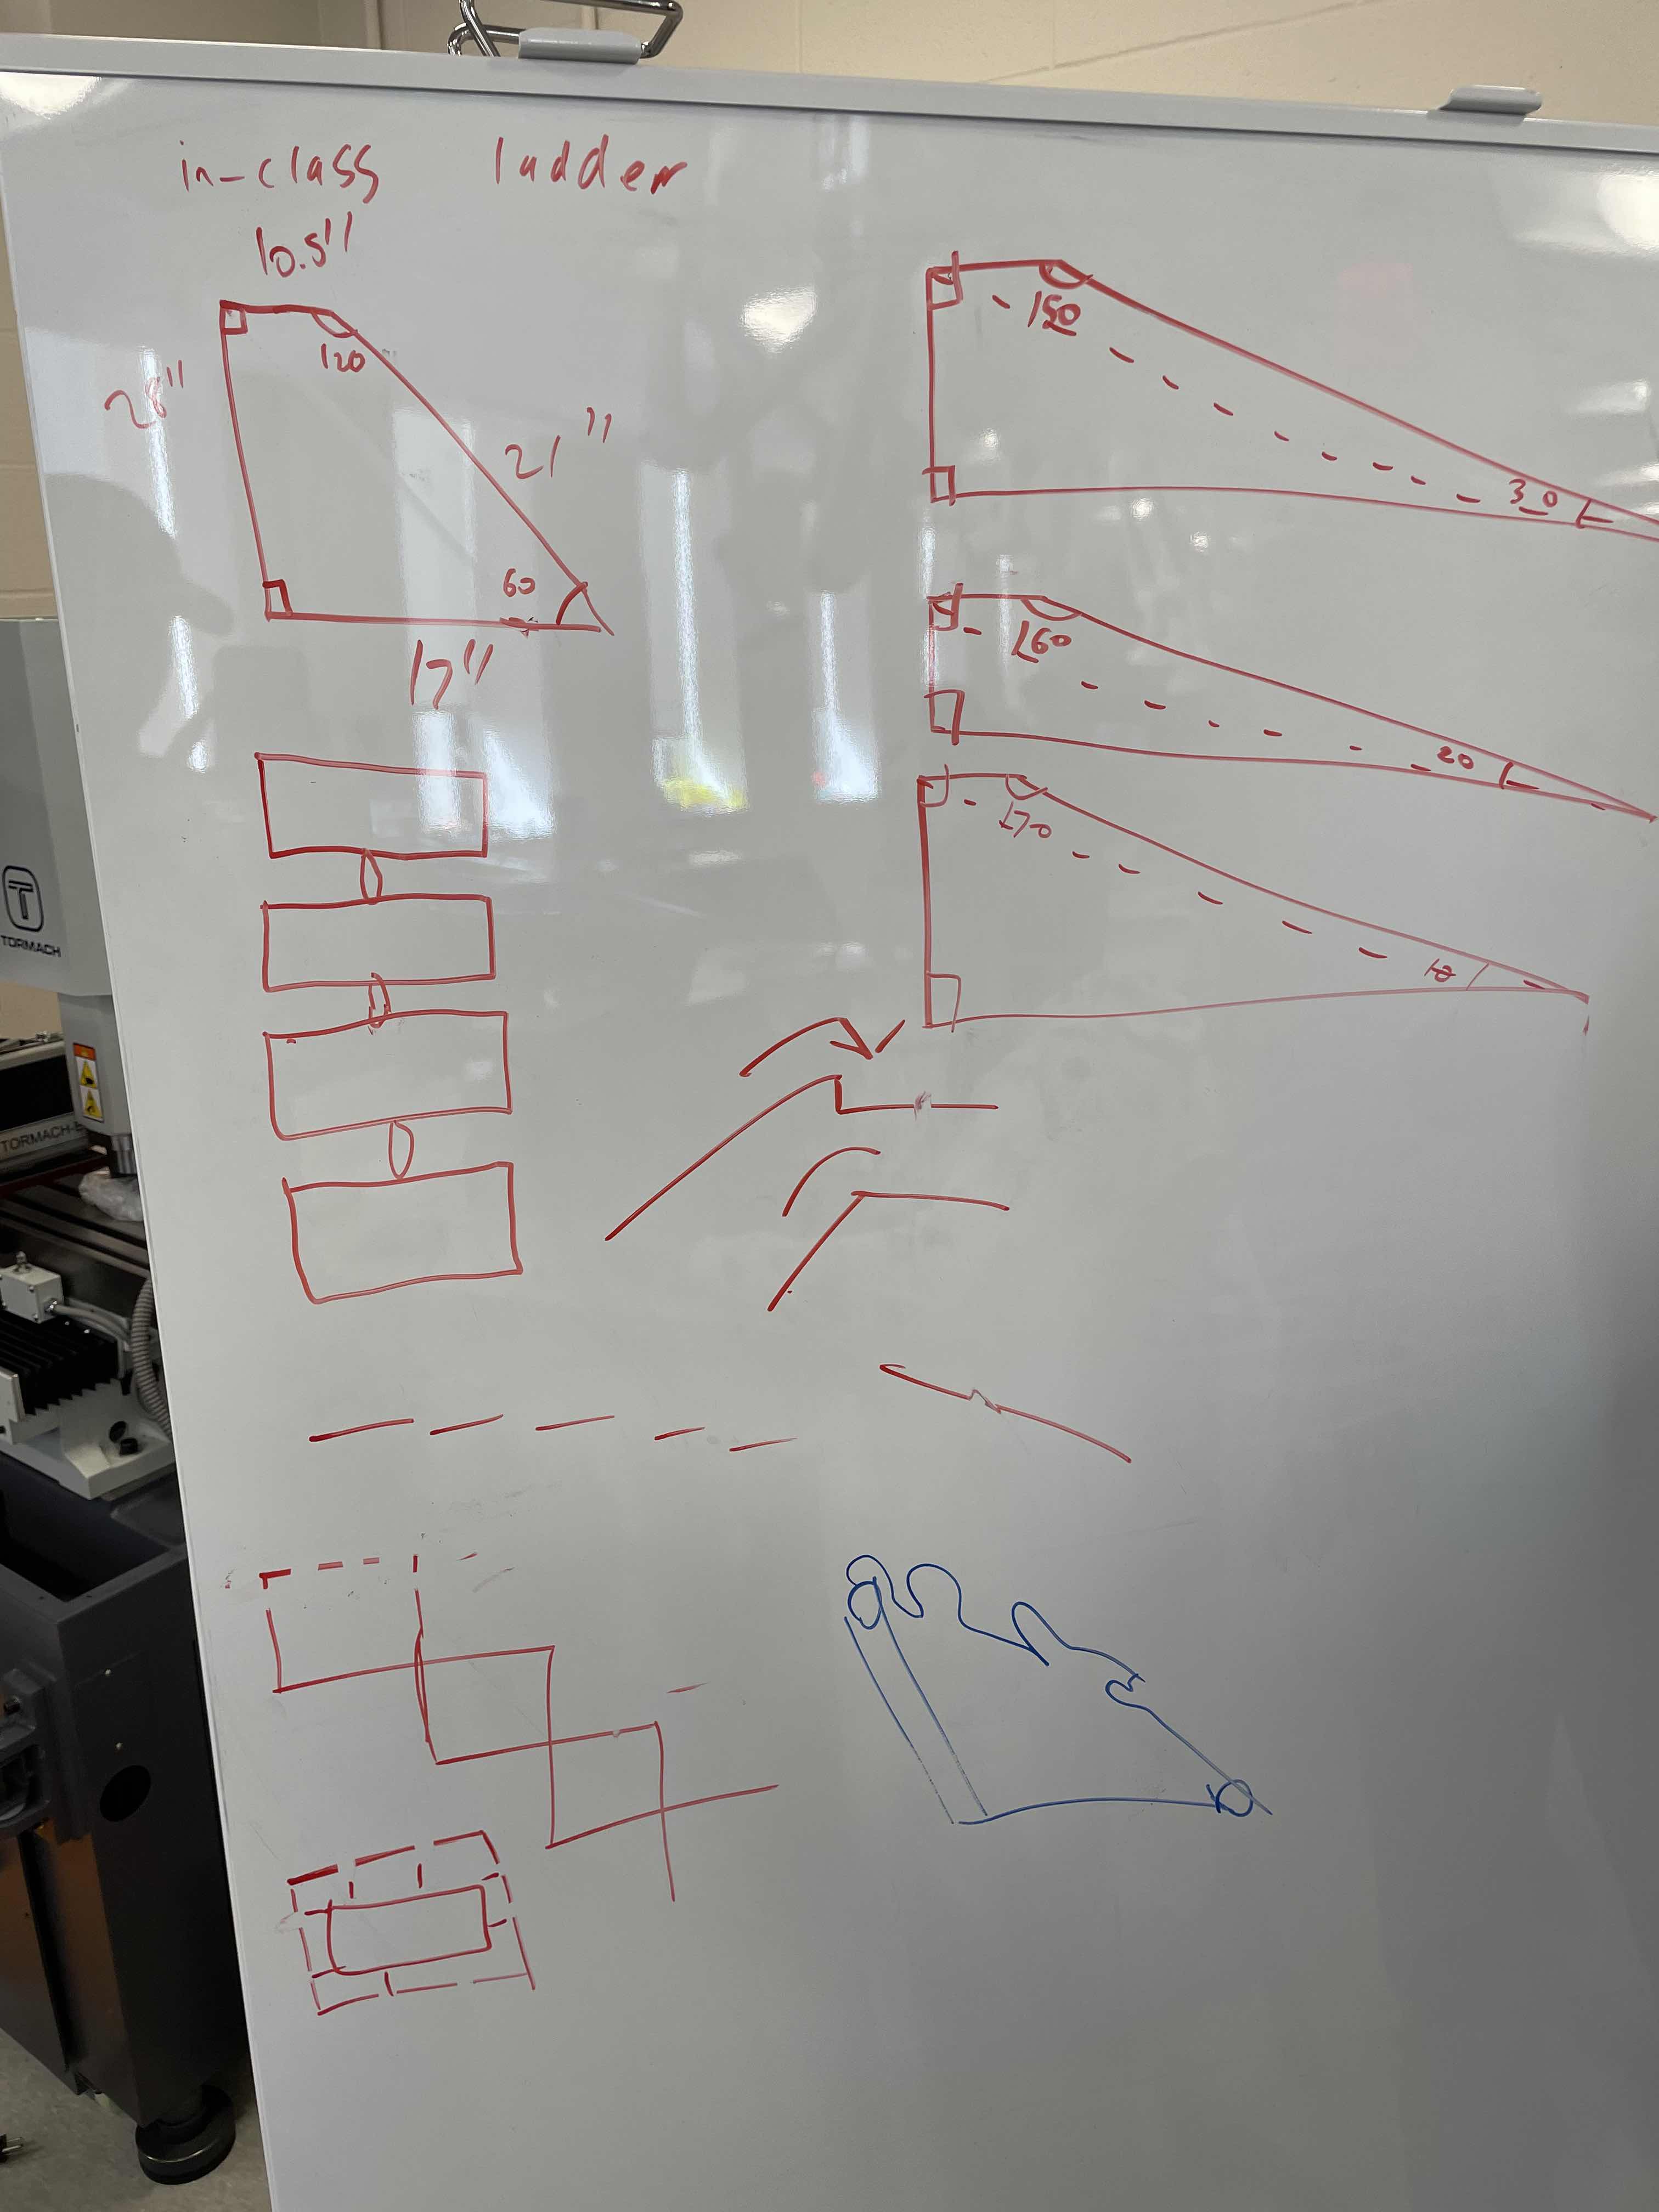 in-class ladder
10.5"
120
28"
21"
60
17"
150
30
160
20
170
10
TORMACH
TORMACH